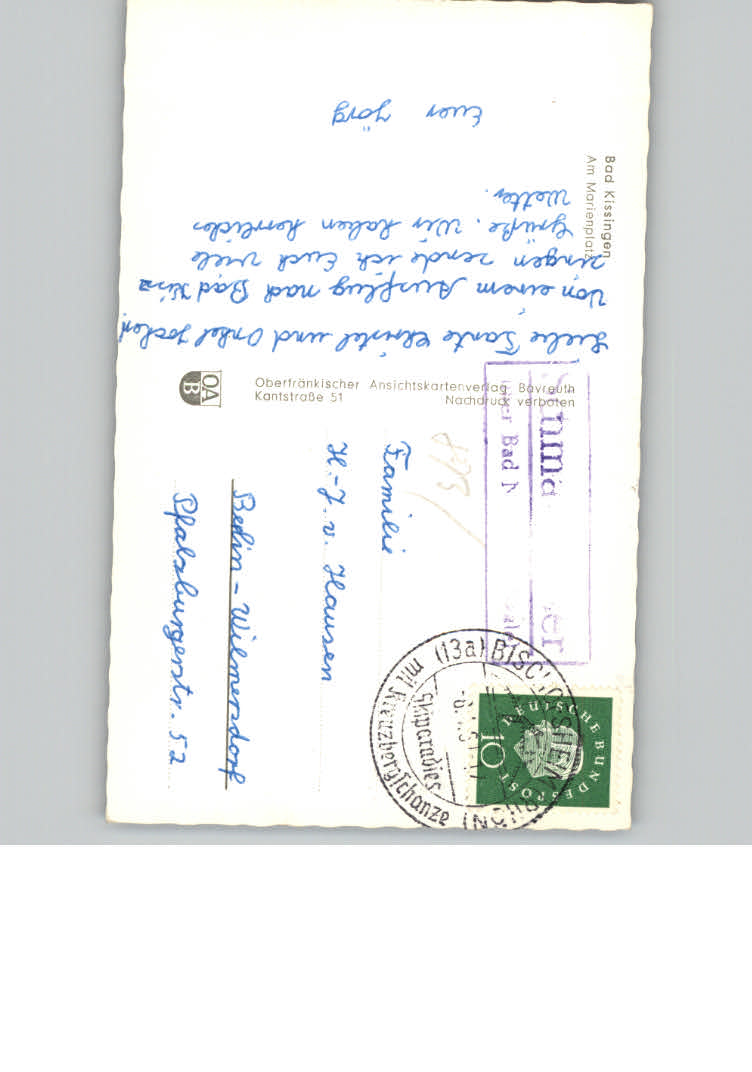 Bad Kissingen
Am Marienplatz
Liebe Tante Christel und Onkel Jochen!
Von einem Ausflug nach Bad Kiss
ingen sende ich Euch viele
Grüße. Wir haben herrliches
Wetter.
Euer Jörg
Oberfränkischer Ansichtskartenverlag Bayreuth
Kantstraße 51 Nachdruck verboten
OA
B
Familie
H.-J. v. Hausen
Berlin-Wilmersdorf
Pfalzburgerstr. 52
(13a) BISCHOFSHEIM (RHÖN)
Skiparadies
mit Kreuzbergschanze
DEUTSCHE BUNDESPOST
10